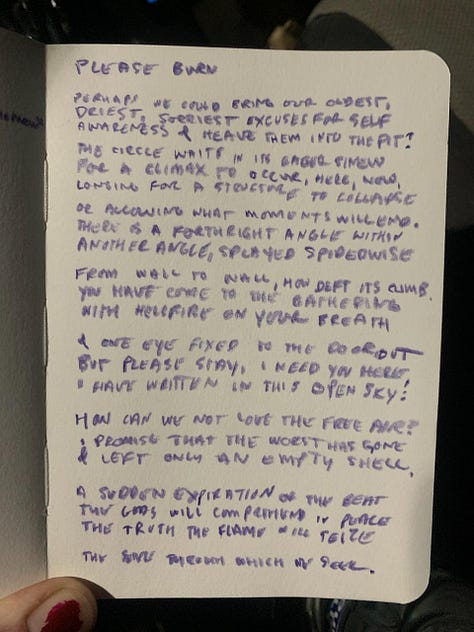 PLEASE BURN
PERHAPS WE COULD BRING OUR OLDEST,
DRIEST, SORRIEST EXCUSES FOR SELF
AWARENESS & HEAVE THEM INTO THE PIT?
THE CIRCLE WAITS IN ITS EAGER SINEW
FOR A CLIMAX TO OCCUR, HERE, NOW,
LONGING FOR A STRUCTURE TO COLLAPSE
OR ALLOWING WHAT MOMENTS WILL END.
THERE IS A FORTHRIGHT ANGLE WITHIN
ANOTHER ANGLE, SPLAYED SPIDERWISE
FROM WALL TO WALL, HOW DEFT ITS CLIMB.
YOU HAVE COME TO THE GATHERING
WITH HELLFIRE ON YOUR BREATH
& ONE EYE FIXED TO THE DOOR OUT
BUT PLEASE STAY, I NEED YOU HERE
I HAVE WRITTEN IN THIS OPEN SKY!
HOW CAN WE NOT LOVE THE FREE AIR?
I PROMISE THAT THE WORST HAS GONE
& LEFT ONLY AN EMPTY SHELL,
A SUDDEN EXPIRATION OF THE BEAT
THE GODS WILL COMPREHEND IN PEACE
THE TRUTH THE FLAME WILL SEIZE
THE THROUGH WHICH WE SEEK.